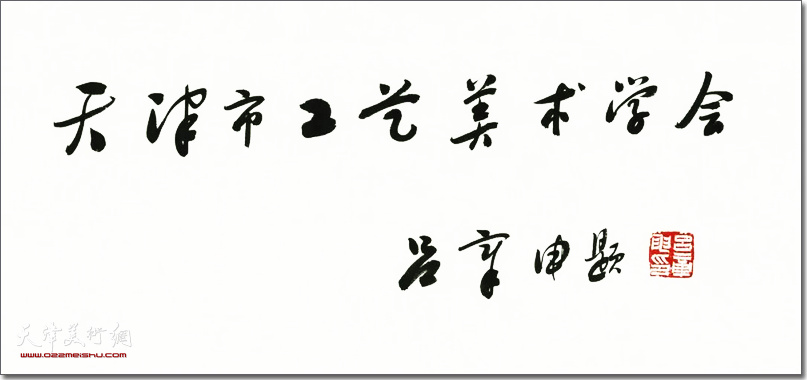 天津市工艺美术学会
吕章申题
天津美術網
www.022meishu.com